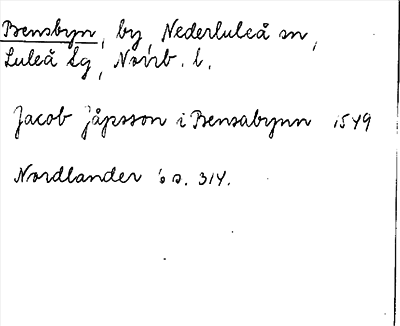 Bensbyn, by, Nederluleå sn,
Luleå lg, Norrb. l.
Jacob Jåpsson i Bensabynn 1549
Nordlander s. 314.